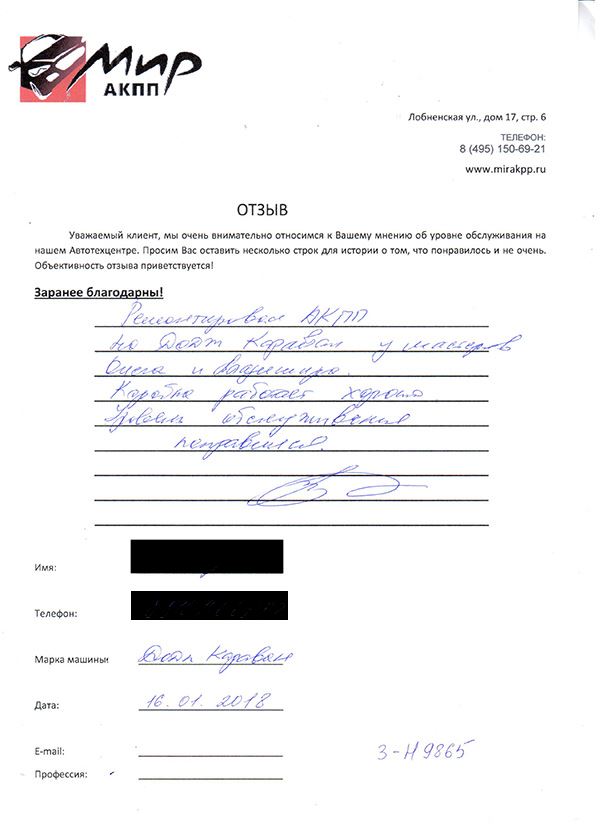 Мир
АКПП
Лобненская ул., дом 17, стр. 6
ТЕЛЕФОН:
8 (495) 150-69-21
www.mirakpp.ru
ОТЗЫВ
Уважаемый клиент, мы очень внимательно относимся к Вашему мнению об уровне обслуживания на
нашем Автотехцентре. Просим Вас оставить несколько строк для истории о том, что понравилось и не очень.
Объективность отзыва приветствуется!
Заранее благодарны!
Ремонтировал АКПП
на Додж Караван у мастеров
Олега и Владимира.
Коробка работает хорошо
Уровень обслуживания
понравился.
Имя:
Телефон:
Марка машины: Додж Караван
Дата: 16.01.2018
E-mail: 3-Н9865
Профессия: